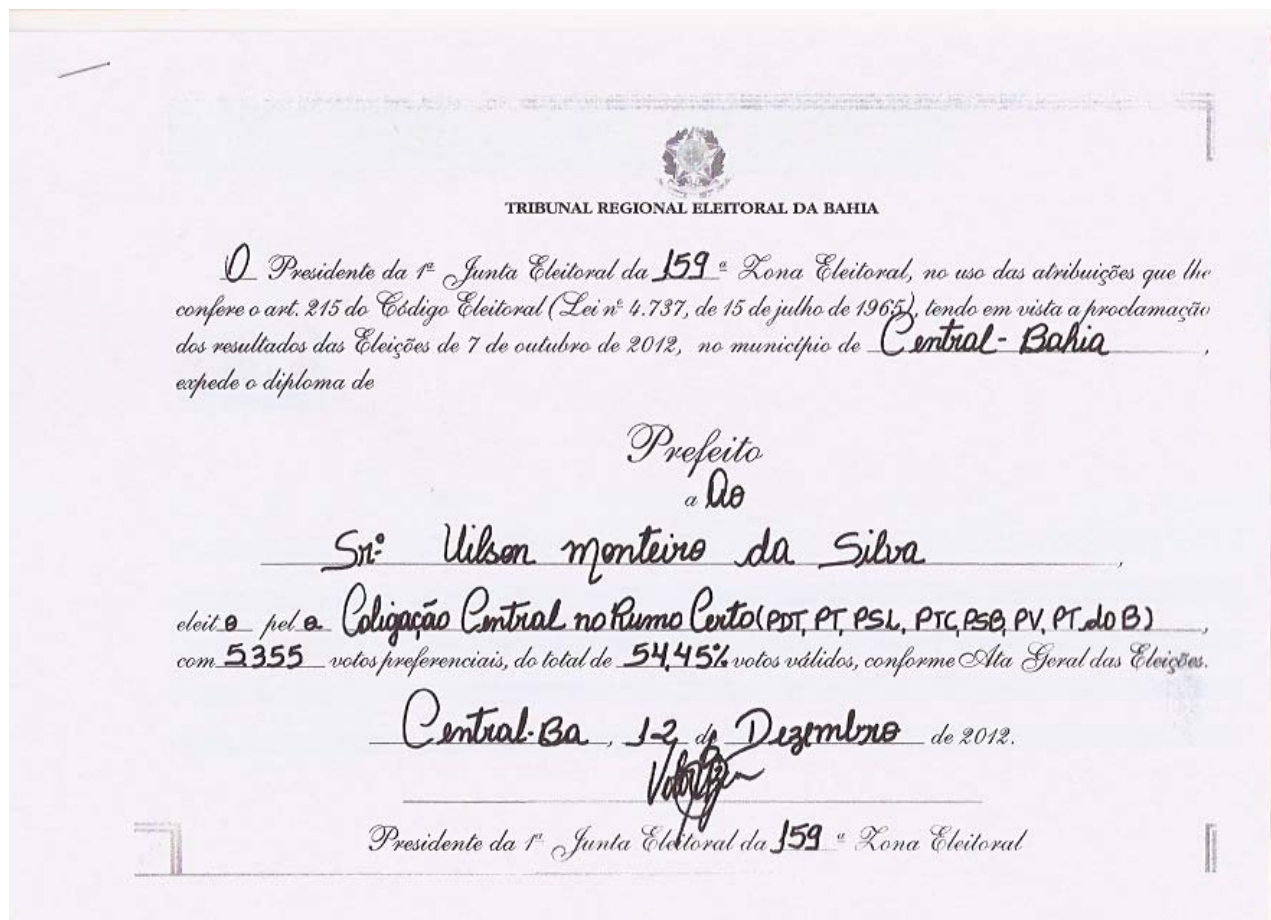 TRIBUNAL REGIONAL ELEITORAL DA BAHIA
O Presidente da 1ª Junta Eleitoral da 159 ª Zona Eleitoral, no uso das atribuições que lhe
confere o art. 215 do Código Eleitoral (Lei nº 4.737, de 15 de julho de 1965), tendo em vista a proclamação
dos resultados das Eleições de 7 de outubro de 2012, no município de Central - Bahia ,
expede o diploma de
Prefeito
a ao
Srº Uilson Monteiro da Silva ,
eleito pela Coligação Central no Rumo Certo (PDT, PT, PSL, PTC, PSB, PV, PT do B) ,
com 5.355 votos preferenciais, do total de 54,45% votos válidos, conforme Ata Geral das Eleições.
Central-Ba , 12 de Dezembro de 2012.
Presidente da 1ª Junta Eleitoral da 159 ª Zona Eleitoral